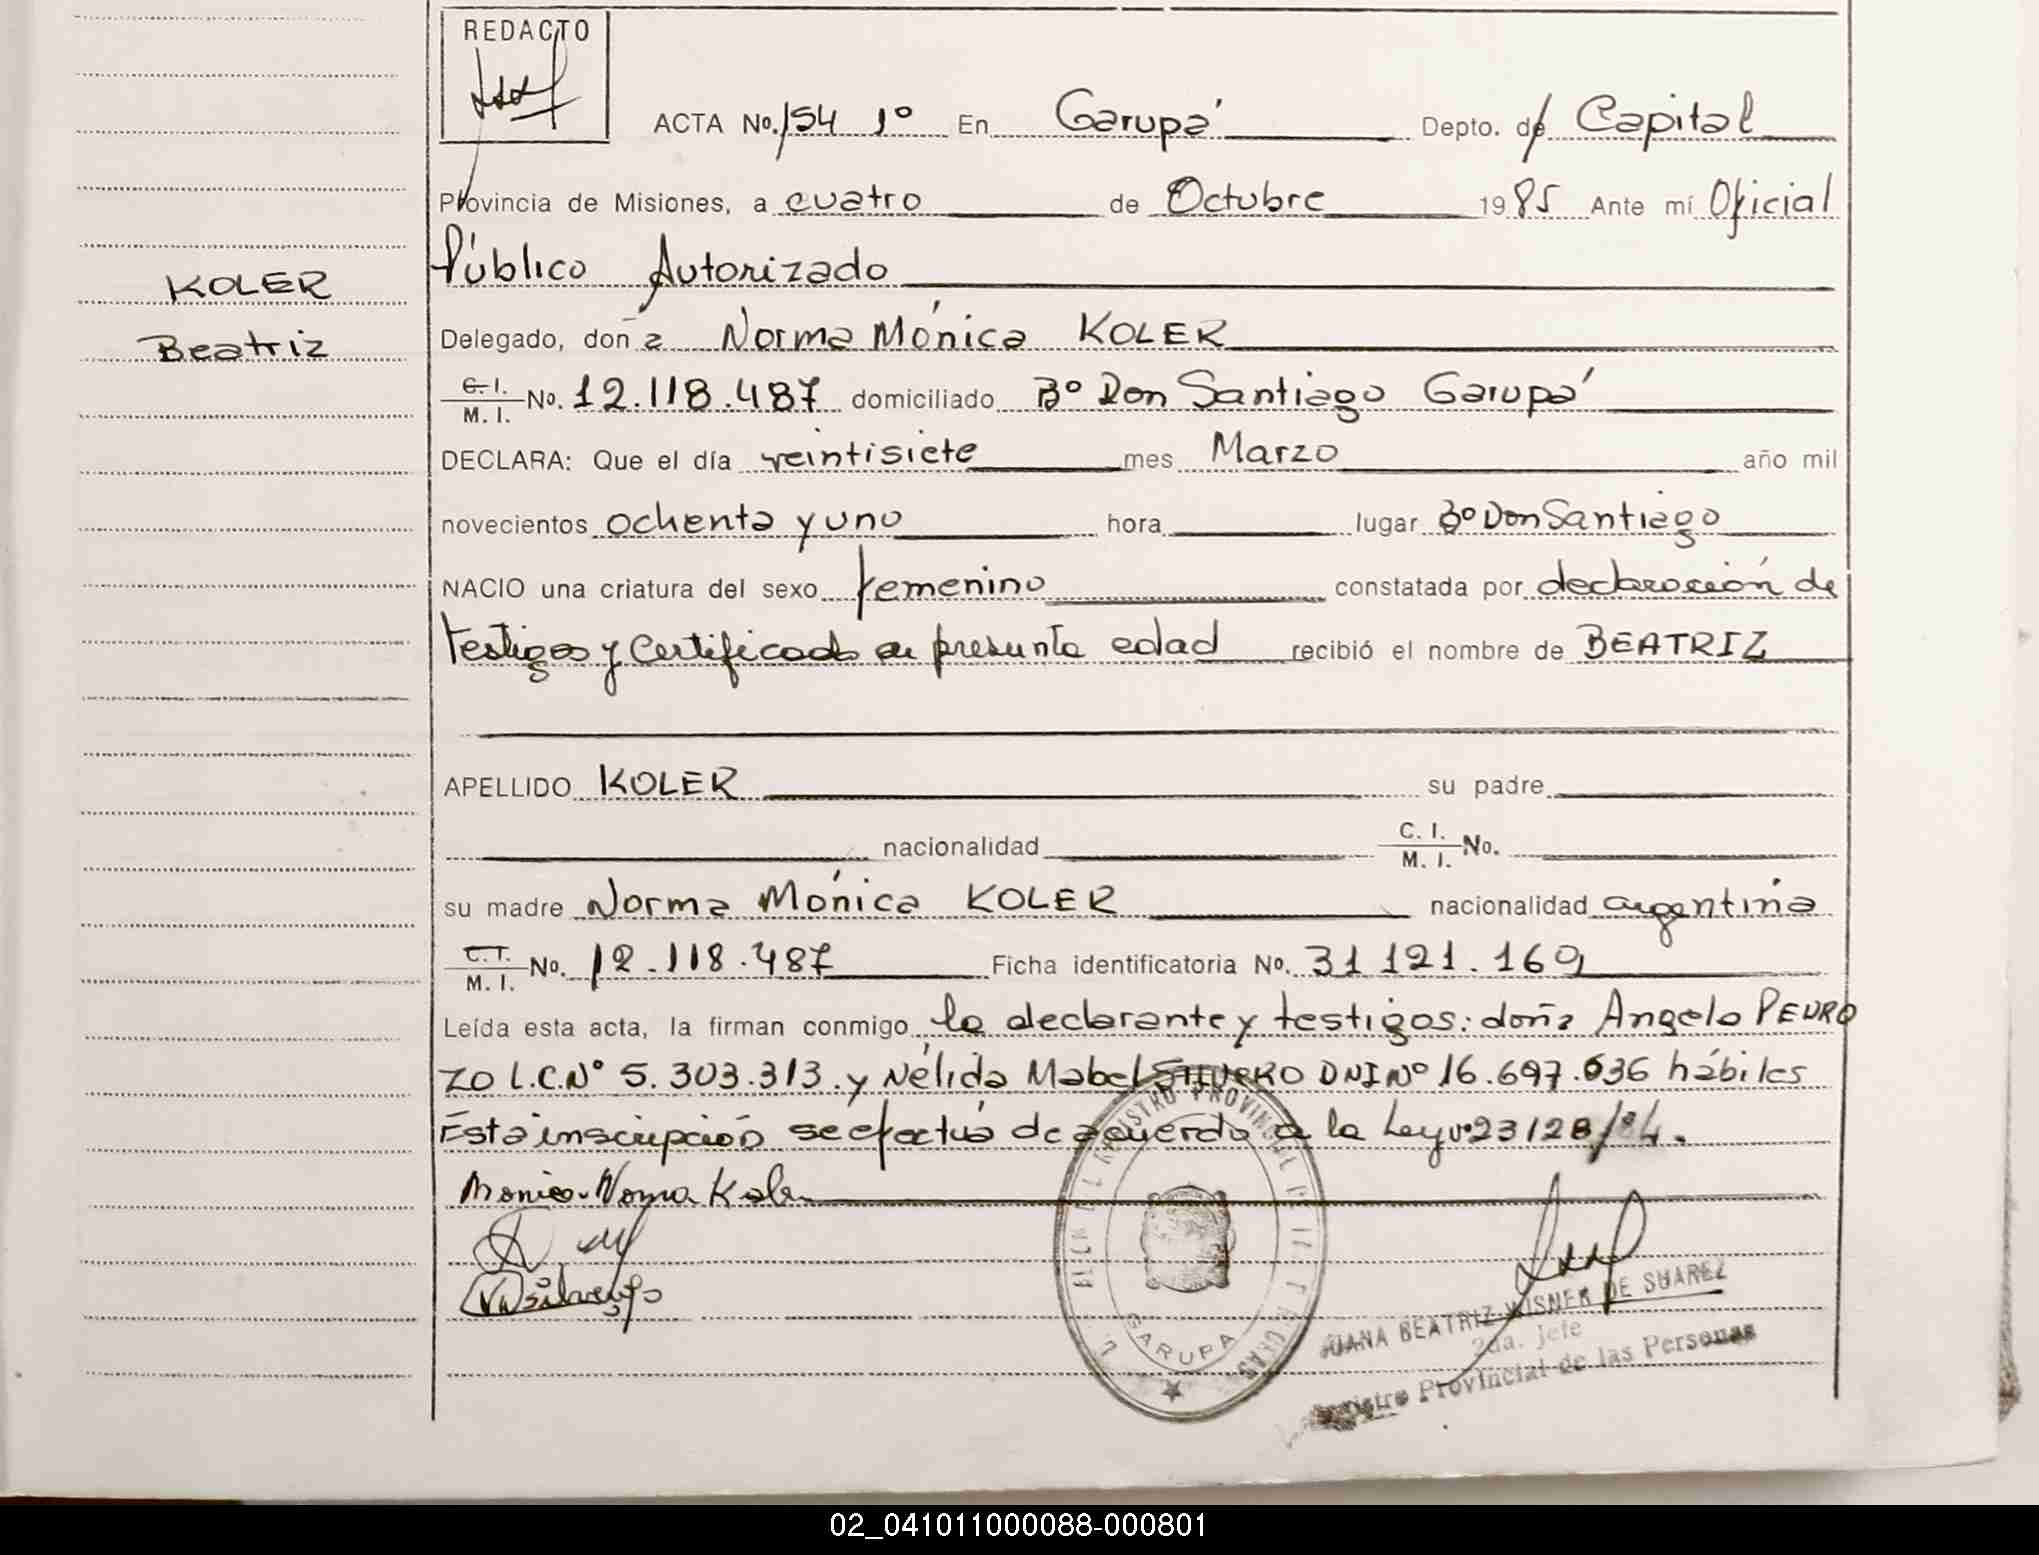 REDACTO
ACTA No. 154 1º En Garupá Depto. de Capital
Provincia de Misiones, a cuatro de Octubre 1985 Ante mí Oficial
Público Autorizado
KOLER
Beatriz
Delegado, doña Norma Mónica KOLER
C. I. / M. I. No. 12.118.487 domiciliado Bº Don Santiago Garupá
DECLARA: Que el día veintisiete mes Marzo año mil
novecientos ochenta y uno hora lugar Bº Don Santiago
NACIO una criatura del sexo femenino constatada por declaración de
testigos y certificado de presunta edad recibió el nombre de BEATRIZ
APELLIDO KOLER su padre
nacionalidad C. I. / M. I. No.
su madre Norma Mónica KOLER nacionalidad argentina
C. I. / M. I. No. 12.118.487 Ficha identificatoria No. 31 121.169
Leída esta acta, la firman conmigo la declarante y testigos: doña Angela PEDRO
ZO L.C.Nº 5.303.313 y Nélida Mabel DNI Nº 16.697.636 hábiles
Esta inscripción se efectúa de acuerdo a la Ley nº 23128/84.
Monica Norma Koler
GARUPA
JUANA BEATRIZ WISNER DE SUAREZ
2da. Jefe
Registro Provincial de las Personas
02_041011000088-000801